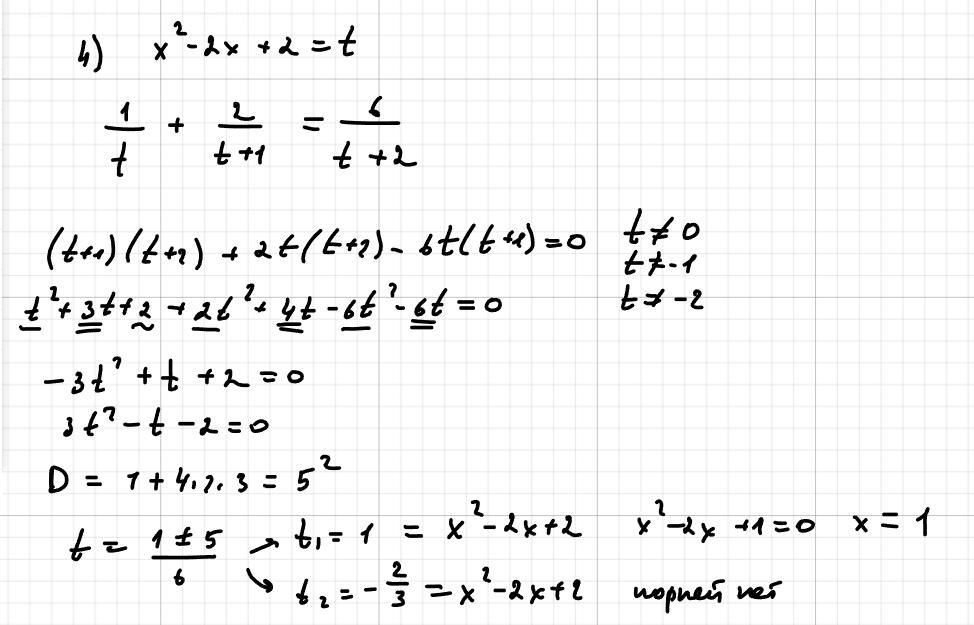 4) x² - 2x + 2 = t
1/t + 2/(t+1) = 6/(t+2)
(t+1)(t+2) + 2t(t+2) - 6t(t+1) = 0 t ≠ 0
t ≠ -1
t² + 3t + 2 + 2t² + 4t - 6t² - 6t = 0 t ≠ -2
-3t² + t + 2 = 0
3t² - t - 2 = 0
D = 1 + 4·2·3 = 5²
t = (1 ± 5)/6 → t₁ = 1 = x² - 2x + 2 x² - 2x + 1 = 0 x = 1
↘ t₂ = -2/3 = x² - 2x + 2 корней нет